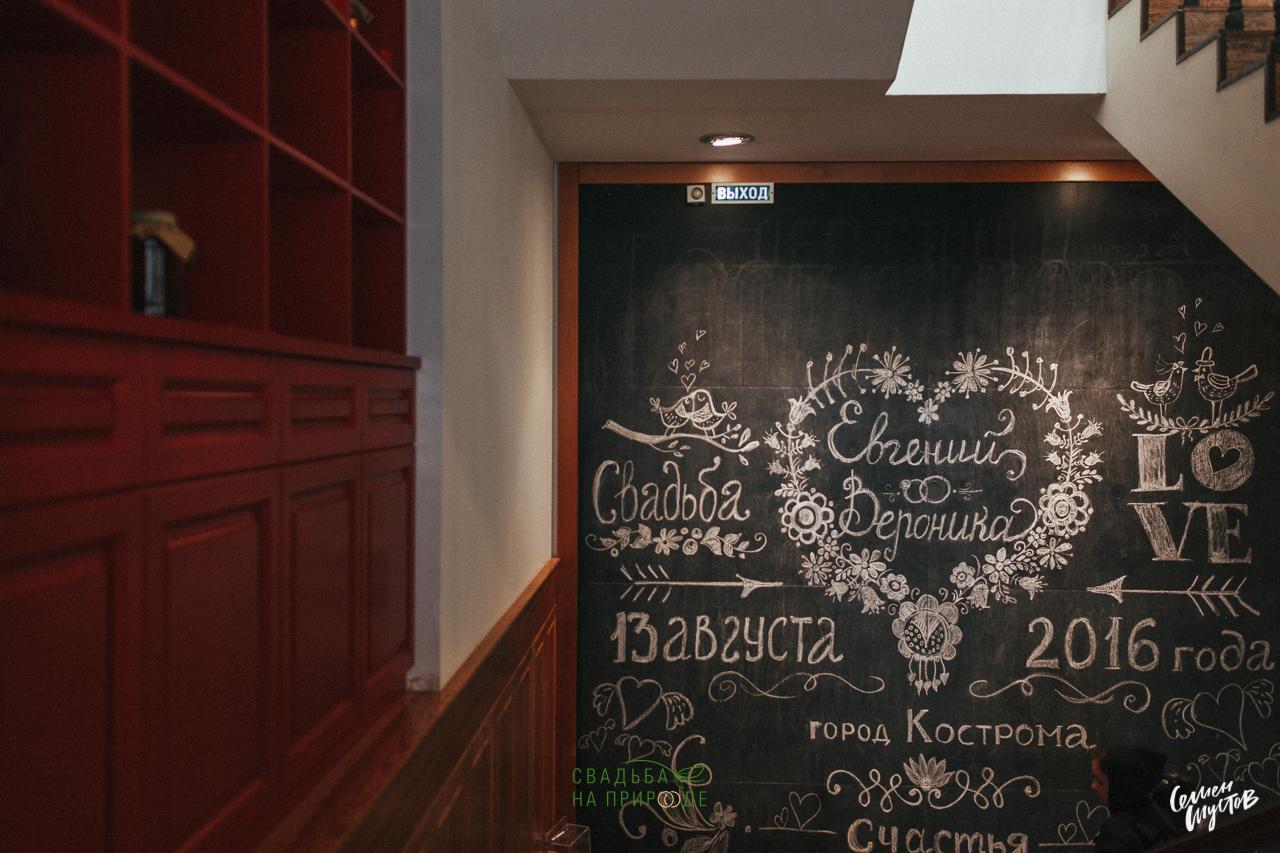 ВЫХОД
Свадьба
Евгений
Вероника
LOVE
13 августа
2016 года
город Кострома
Счастья
СВАДЬБА
НА ПРИРОДЕ
Семен
Шустов